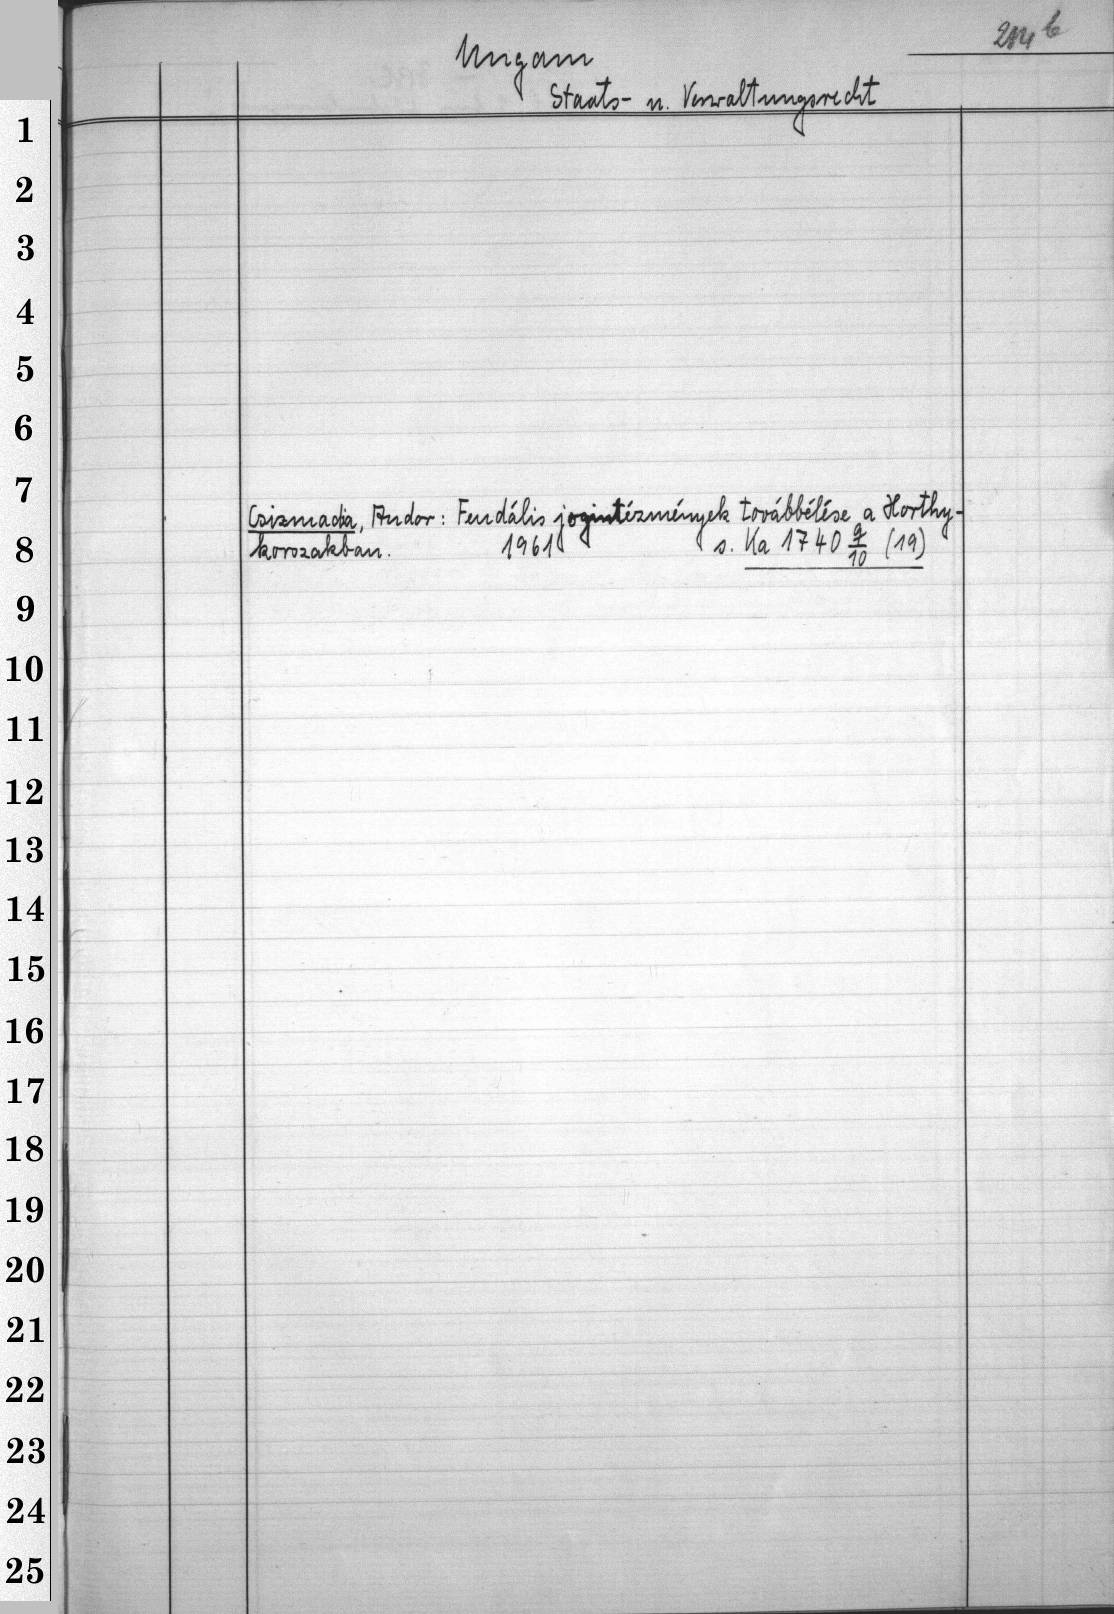 Ungarn
Staats- u. Verwaltungsrecht
1
2
3
4
5
6
7
Csizmadia, Andor: Feudális jogintézmények továbbélése a Horthy-
korszakban. 1961 s. Ka 1740 9/10 (19)
8
9
10
11
12
13
14
15
16
17
18
19
20
21
22
23
24
25